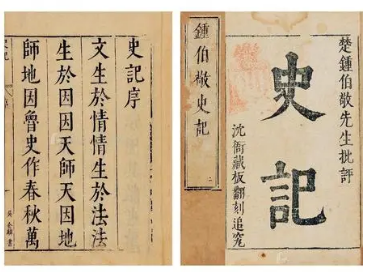 楚鍾伯敬先生批評
史記
沈衙藏板翻刻追究
鍾伯敬史記
史記序
文生於情情生於法法
生於因因天師天因地
師地因魯史作春秋萬
史記